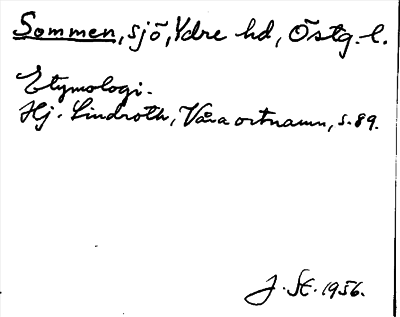 Sommen, sjö, Ydre hd, Östg. l.
Etymologi.
Hj. Lindroth, Våra ortnamn, s. 89.
J. SE. 1956.